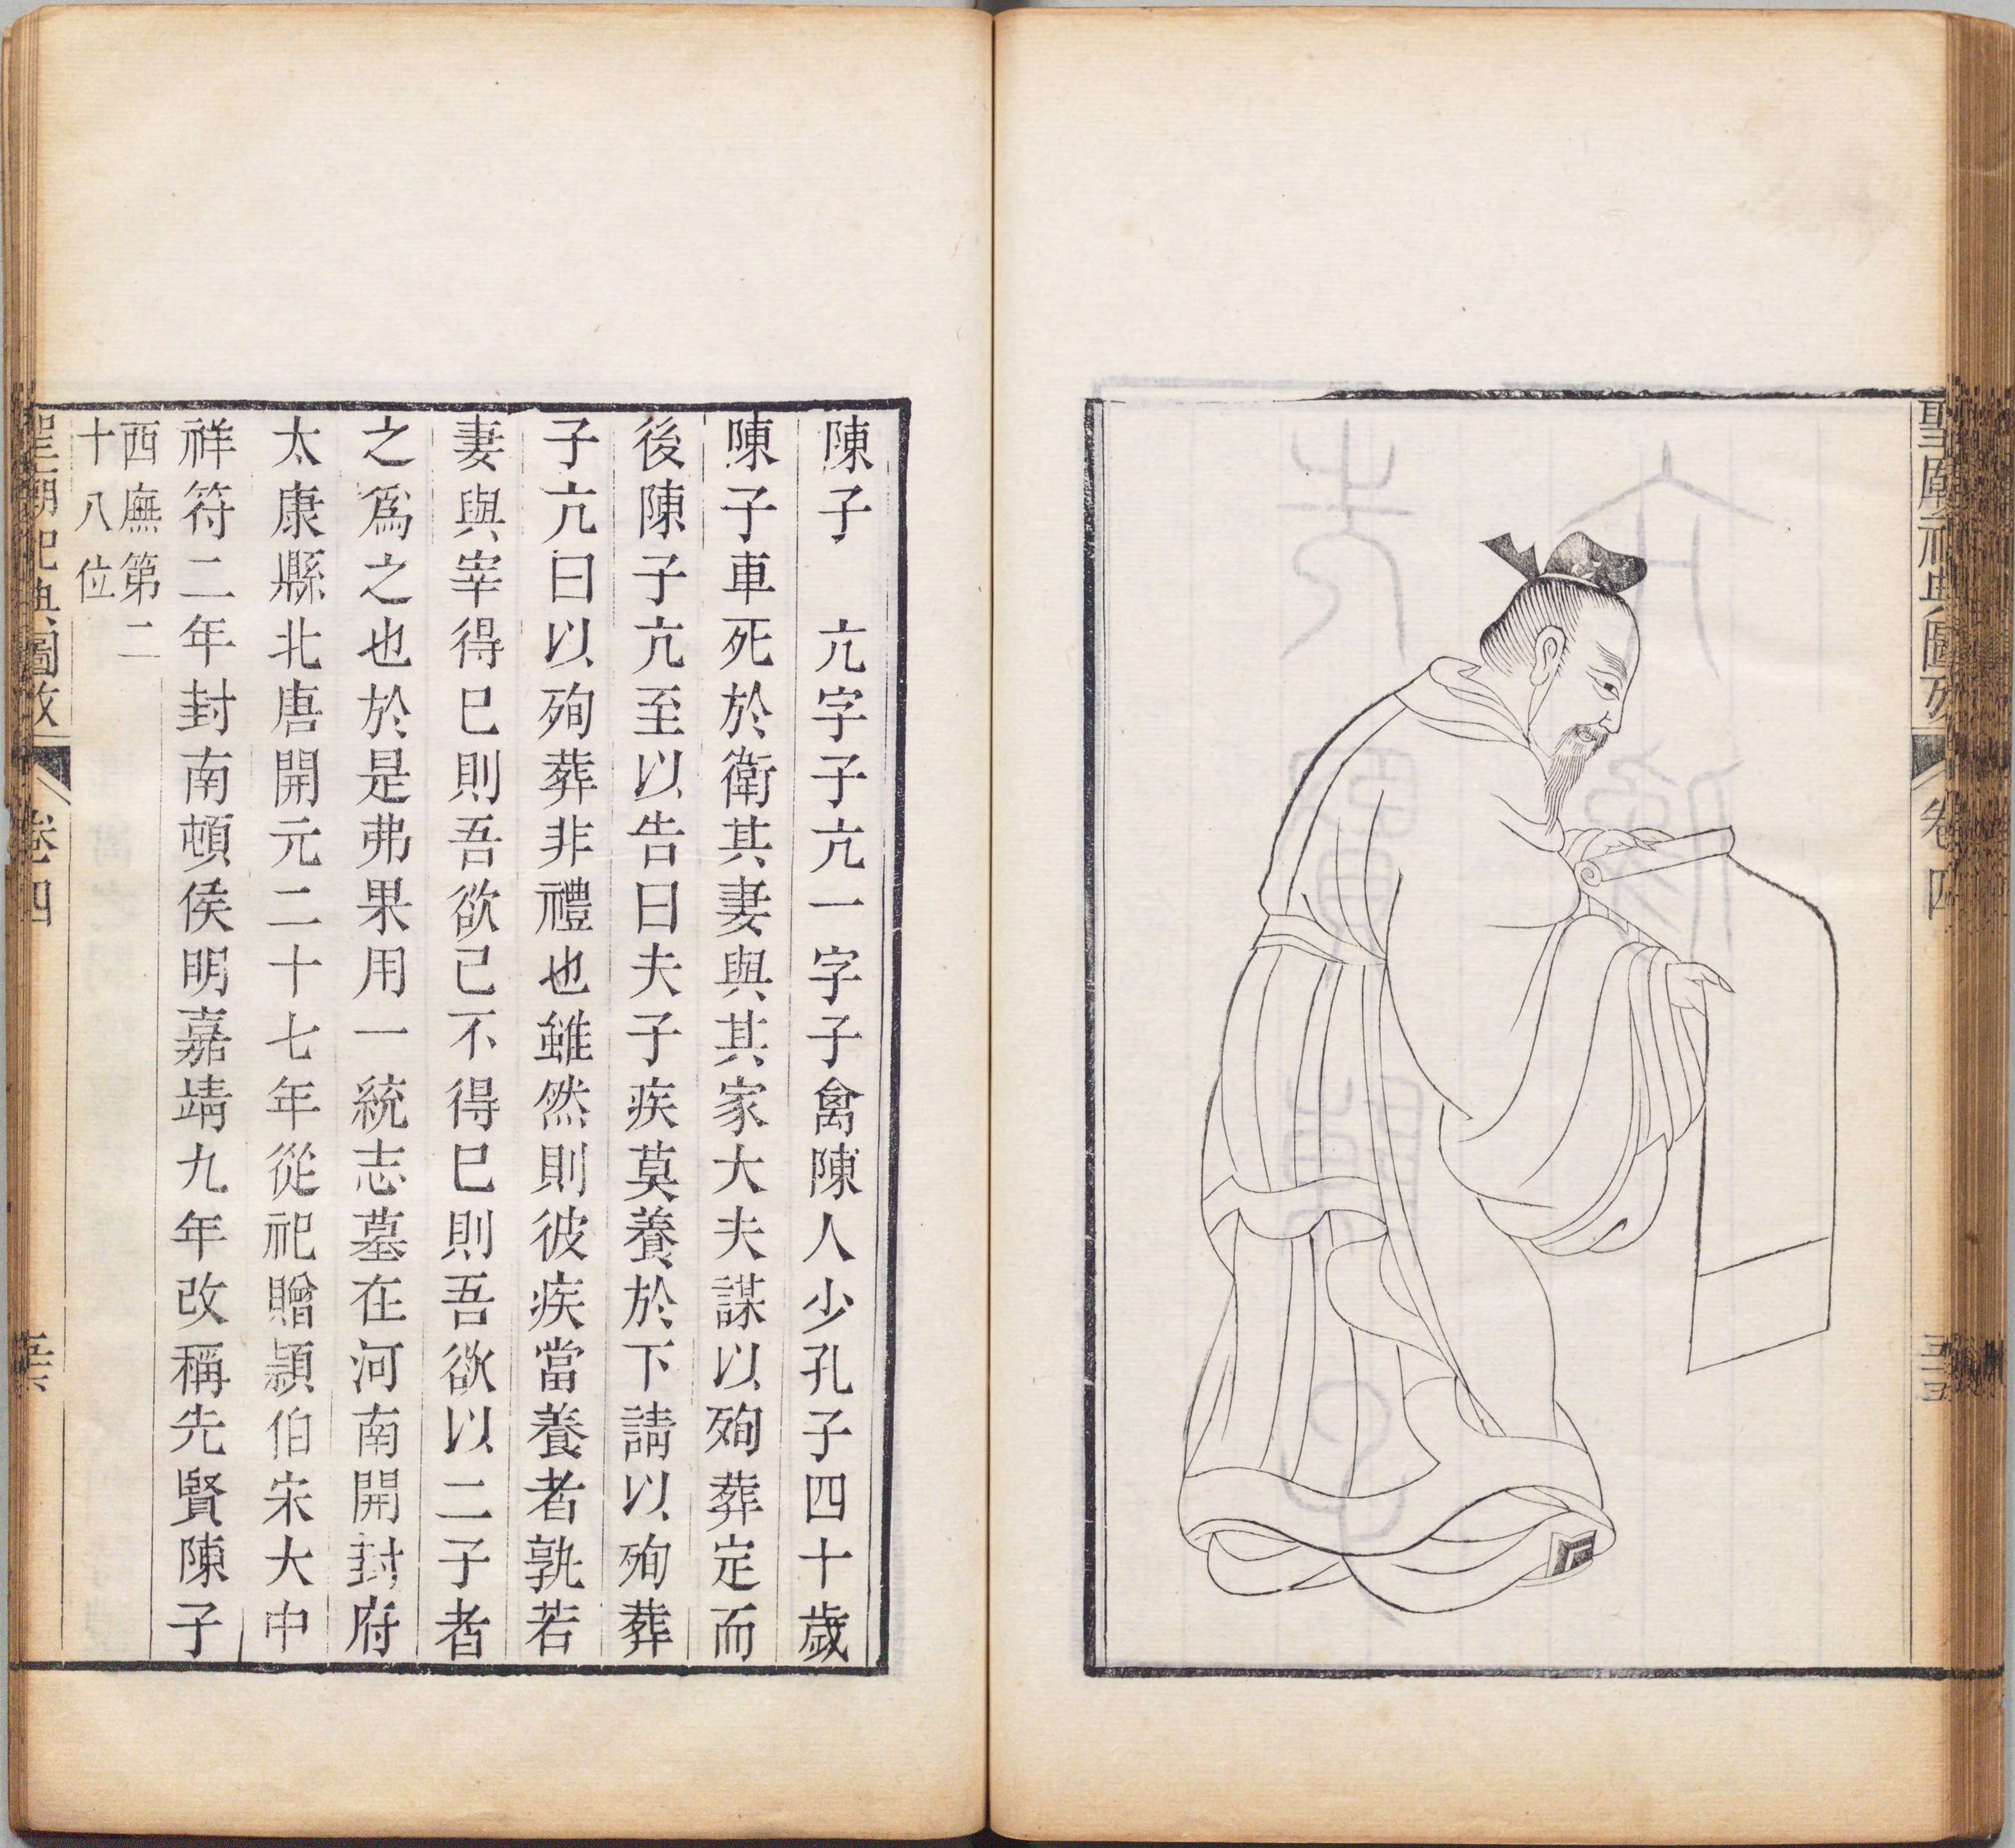 聖廟祀典圖攷
卷四
三十五
陳子　亢字子亢一字子禽陳人少孔子四十歲
陳子車死於衛其妻與其家大夫謀以殉葬定而
後陳子亢至以告曰夫子疾莫養於下請以殉葬
子亢曰以殉葬非禮也雖然則彼疾當養者孰若
妻與宰得巳則吾欲己不得巳則吾欲以二子者
之爲之也於是弗果用一統志墓在河南開封府
太康縣北唐開元二十七年從祀贈潁伯宋大中
祥符二年封南頓侯明嘉靖九年改稱先賢陳子
西廡第二
十八位
聖廟祀典圖攷
卷四